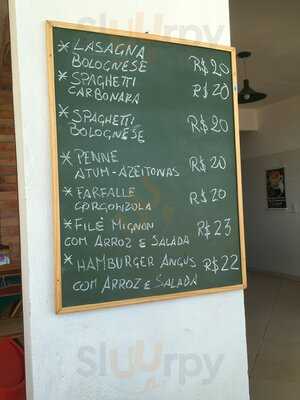 sluurpy
* LASAGNA
BOLOGNESE R$20
* SPAGHETTI
CARBONARA R$20
* SPAGHETTI
BOLOGNESE R$20
* PENNE
ATUM-AZEITONAS R$20
* FARFALLE
GORGONZOLA R$20
* FILÉ MIGNON R$23
COM ARROZ E SALADA
* HAMBURGER ANGUS R$22
COM ARROZ E SALADA
sluurpy